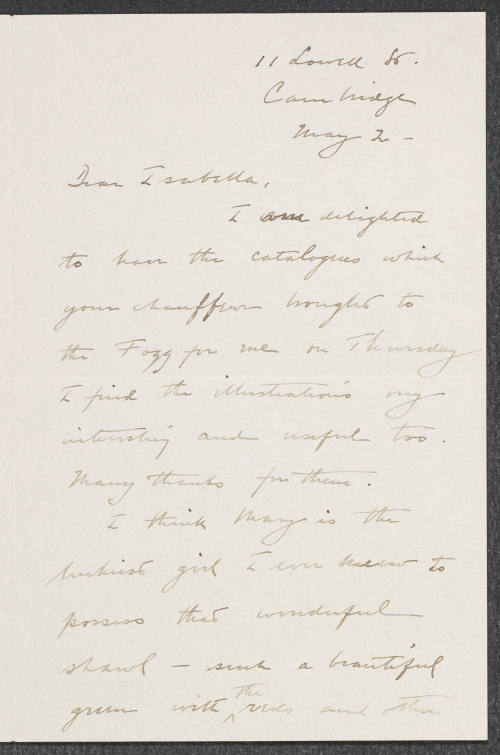 11 Lowell St.
Cambridge
May 2 -
Dear Isabella,
I am delighted
to have the catalogues which
your chauffeur brought to
the Fogg for me on Thursday.
I find the illustrations very
interesting and useful too.
Many thanks for them.
I think Mary is the
luckiest girl I ever knew to
possess that wonderful
shawl - such a beautiful
green with the reds and other